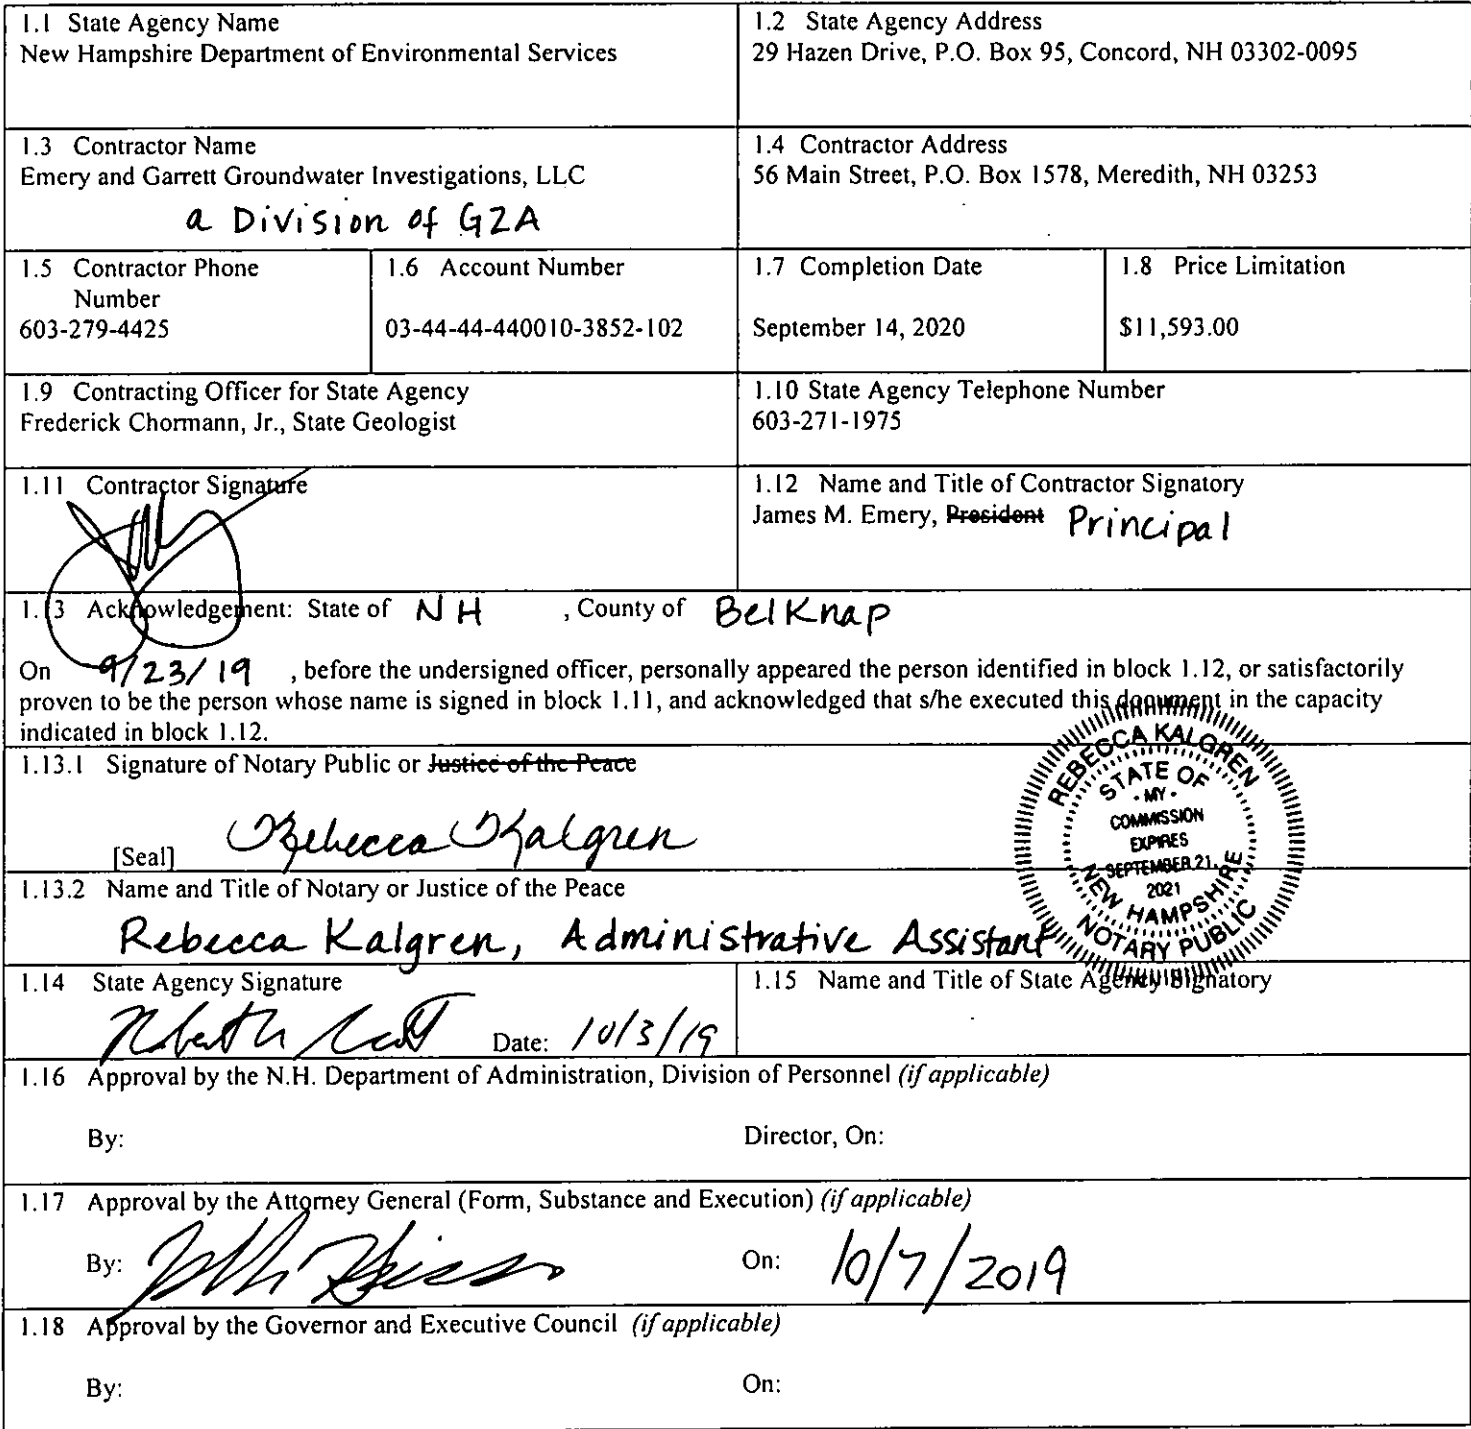 1.1 State Agency Name
New Hampshire Department of Environmental Services
1.2 State Agency Address
29 Hazen Drive, P.O. Box 95, Concord, NH 03302-0095
1.3 Contractor Name
Emery and Garrett Groundwater Investigations, LLC
a Division of GZA
1.4 Contractor Address
56 Main Street, P.O. Box 1578, Meredith, NH 03253
1.5 Contractor Phone
Number
603-279-4425
1.6 Account Number
03-44-44-440010-3852-102
1.7 Completion Date
September 14, 2020
1.8 Price Limitation
$11,593.00
1.9 Contracting Officer for State Agency
Frederick Chormann, Jr., State Geologist
1.10 State Agency Telephone Number
603-271-1975
1.11 Contractor Signature
1.12 Name and Title of Contractor Signatory
James M. Emery, President Principal
1.13 Acknowledgement: State of NH , County of Belknap
On 9/23/19 , before the undersigned officer, personally appeared the person identified in block 1.12, or satisfactorily
proven to be the person whose name is signed in block 1.11, and acknowledged that s/he executed this document in the capacity
indicated in block 1.12.
1.13.1 Signature of Notary Public or Justice of the Peace
Rebecca Kalgren
[Seal]
REBECCA KALGREN
STATE OF
MY
COMMISSION
EXPIRES
SEPTEMBER 21,
2021
NEW HAMPSHIRE
NOTARY PUBLIC
1.13.2 Name and Title of Notary or Justice of the Peace
Rebecca Kalgren, Administrative Assistant
1.14 State Agency Signature
Date: 10/3/19
1.15 Name and Title of State Agency Signatory
1.16 Approval by the N.H. Department of Administration, Division of Personnel (if applicable)
By:
Director, On:
1.17 Approval by the Attorney General (Form, Substance and Execution) (if applicable)
By:
On: 10/7/2019
1.18 Approval by the Governor and Executive Council (if applicable)
By:
On: